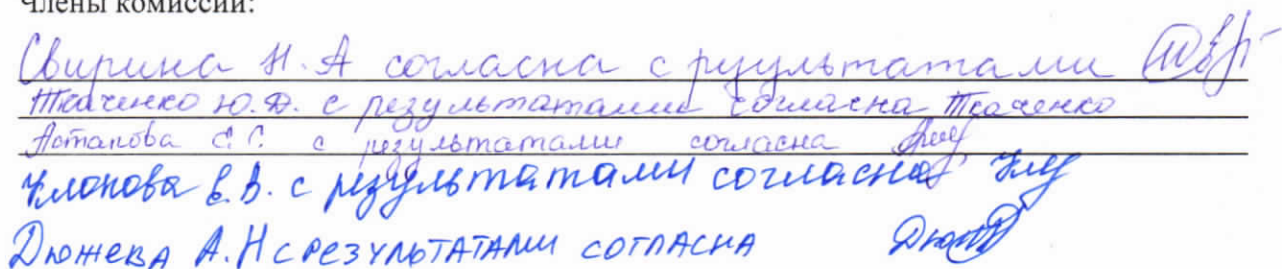 Члены комиссии:
Свирина Н.А согласна с результатами
Ткаченко Ю.Д. с результатами согласна Ткаченко
Астапова Е.С. с результатами согласна
Клопова Е.В. с результатами согласна
Дюжева А.Н с результатами согласна